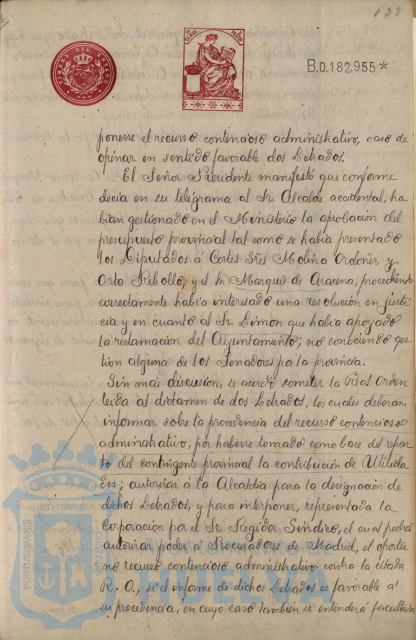 122
B.0.182.955*
ponerse el recurso contencioso administrativo, caso de
opinar en sentido favorable dos Letrados.
El Señor Presidente manifestó que conforme
decia en su telegrama al Sr. Alcalde accidental, ha
bian gestionado en el Ministerio la aprobacion del
presupuesto provincial tal como se habia presentado
los Diputados á Cortes Sres Molina Ordoñez y
Orta Rebollo, y el Sr. Marqués de Aracena, procediendo
correctamente habia interesado una resolucion en justi
cia y en cuanto al Sr. Limon que habia apoyado
la reclamación del Ayuntamiento; no conociendo ges
tion alguna de los Senadores por la provincia.
Sin más discusión, se acordó someter la Real Orden
leida al dictamen de dos Letrados, los cuales deberan
informar sobre la procedencia del recurso contencioso
administrativo, por haberse tomado como base del repar
to del contingente provincial la contribución de Utilida
des; autorizar á la Alcaldia para la designación de
dichos Letrados, y para interponer, representada la
Corporación por el Sr. Regidor Síndico, el cual podrá
autorizar poder á Procuradores de Madrid, el oportu
no recurso contencioso administrativo contra la citada
R. O., si el informe de dichos Letrados es favorable á
su procedencia, en cuyo caso tambien se entenderá facultada
HUELVA